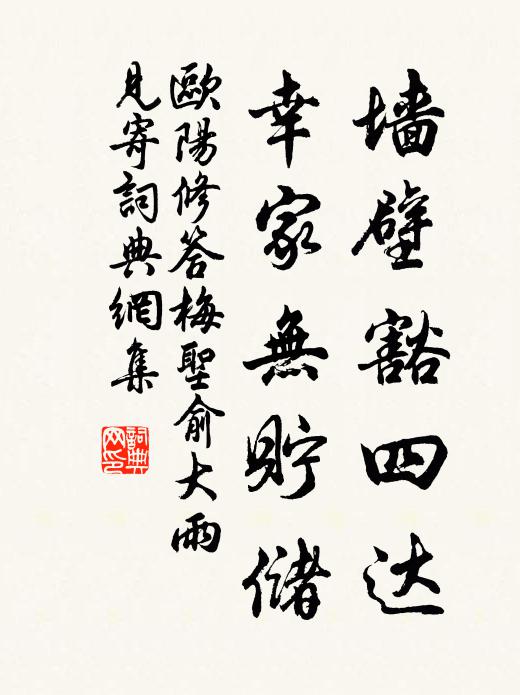 墙壁豁四达
幸家無貯儲
歐陽修答梅聖俞大雨
見寄詞典網集
詞典
网印